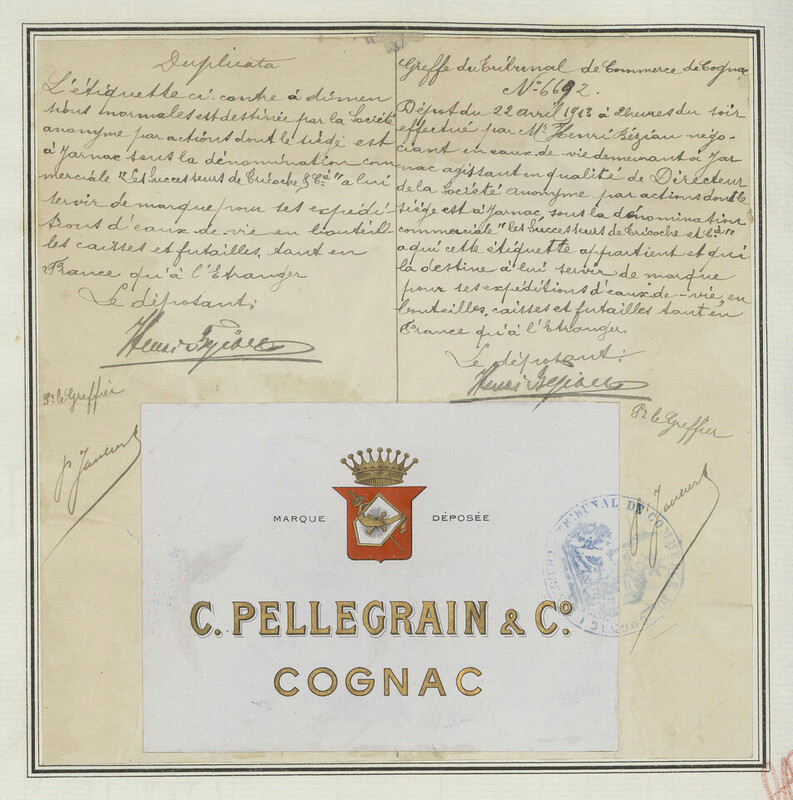 Duplicata
L'étiquette ci-contre à dimen
sions normales est destinée par la Société
anonyme par actions dont le siège est
à Jarnac sous la dénomination com
merciale "Les Successeurs de Tricoche & Cie" a lui
servir de marque pour ses expédi-
tions d'eaux-de-vie en bouteil-
les caisses et futailles, tant en
France qu'à l'Etranger
Le déposant:
Henri Bézian
Pr le Greffier
Greffe du Tribunal de Commerce de Cognac
No 6692.
Dépot du 22 avril 1913 à 2 heures du soir
effectué par Mr. Henri Béziau négo-
ciant en eaux-de-vie demeurant à Jar
nac agissant en qualité de Directeur
de la Société anonyme par actions dont le
siège est à Jarnac, sous la dénomination
commerciale "les Successeurs de Tricoche et Cie"
a qui cette étiquette appartient et qui
la destine à lui servir de marque
pour ses expéditions d'eaux-de-vie, en
bouteilles, caisses et futailles tant en
France qu'à l'Etranger.
Le déposant:
Henri Bézian
Pr le Greffier
MARQUE DÉPOSÉE
C. PELLEGRAIN & Co.
COGNAC
TRIBUNAL DE COMMERCE
COGNAC